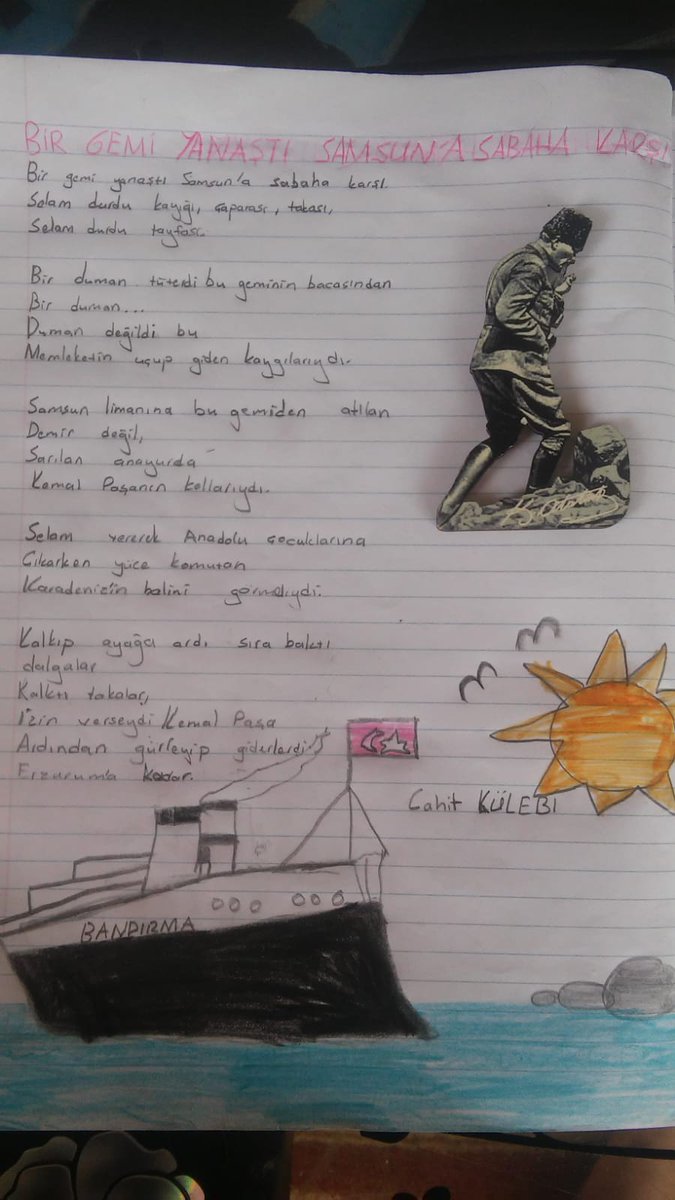 BİR GEMİ YANAŞTI SAMSUN'A SABAHA KARŞI
Bir gemi yanaştı Samsun'a sabaha karşı.
Selam durdu kayığı, çaparası, takası,
Selam durdu tayfası.
Bir duman tüterdi bu geminin bacasından
Bir duman...
Duman değildi bu
Memleketin uçup giden kaygılarıydı.
Samsun limanına bu gemiden atılan
Demir değil,
Sarılan anayurda
Kemal Paşanın kollarıydı.
Selam vererek Anadolu çocuklarına
Çıkarken yüce komutan
Karadeniz'in halini görmeliydi.
Kalkıp ayağa ardı sıra baktı
dalgalar
Kalktı takalar,
İzin verseydi Kemal Paşa
Ardından gürleyip giderlerdi
Erzurum'a kadar.
Cahit KÜLEBİ
BANDIRMA
K. Atatürk